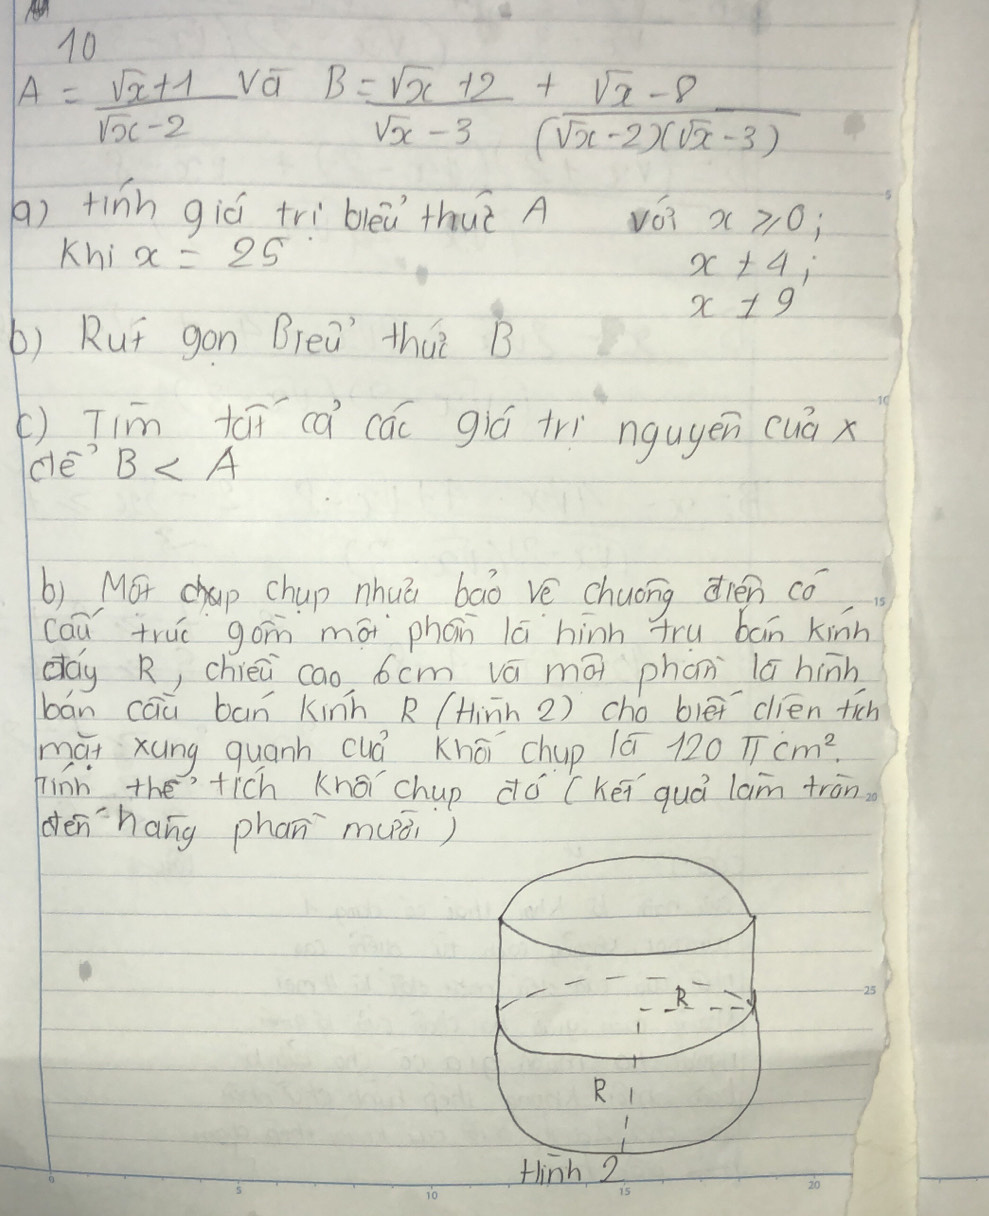 10
A = (√x+1)/(√x-2) Và B = (√x+2)/(√x-3) + (√x-8)/((√x-2)(√x-3))
a) tính giá trị biểu thức A với x ≥ 0;
Khi x = 25 x ≠ 4;
x ≠ 9
b) Rút gọn Biểu thức B
c) Tìm tất cả các giá trị nguyên của x
để B < A
b) Một chụp nhựa bảo vệ chuông điện có
cấu trúc gồm một phần là hình trụ bán kính
đáy R, chiều cao 6cm và một phần là hình
bán cầu bán kính R (Hình 2) cho biết diện tích
mặt xung quanh của khối chụp là 120 π cm².
Tính thể tích khối chụp đó (kết quả làm tròn
đến hàng phần mười)
R
R
Hình 2
5
10
15
20
25
0
5
10
15
20